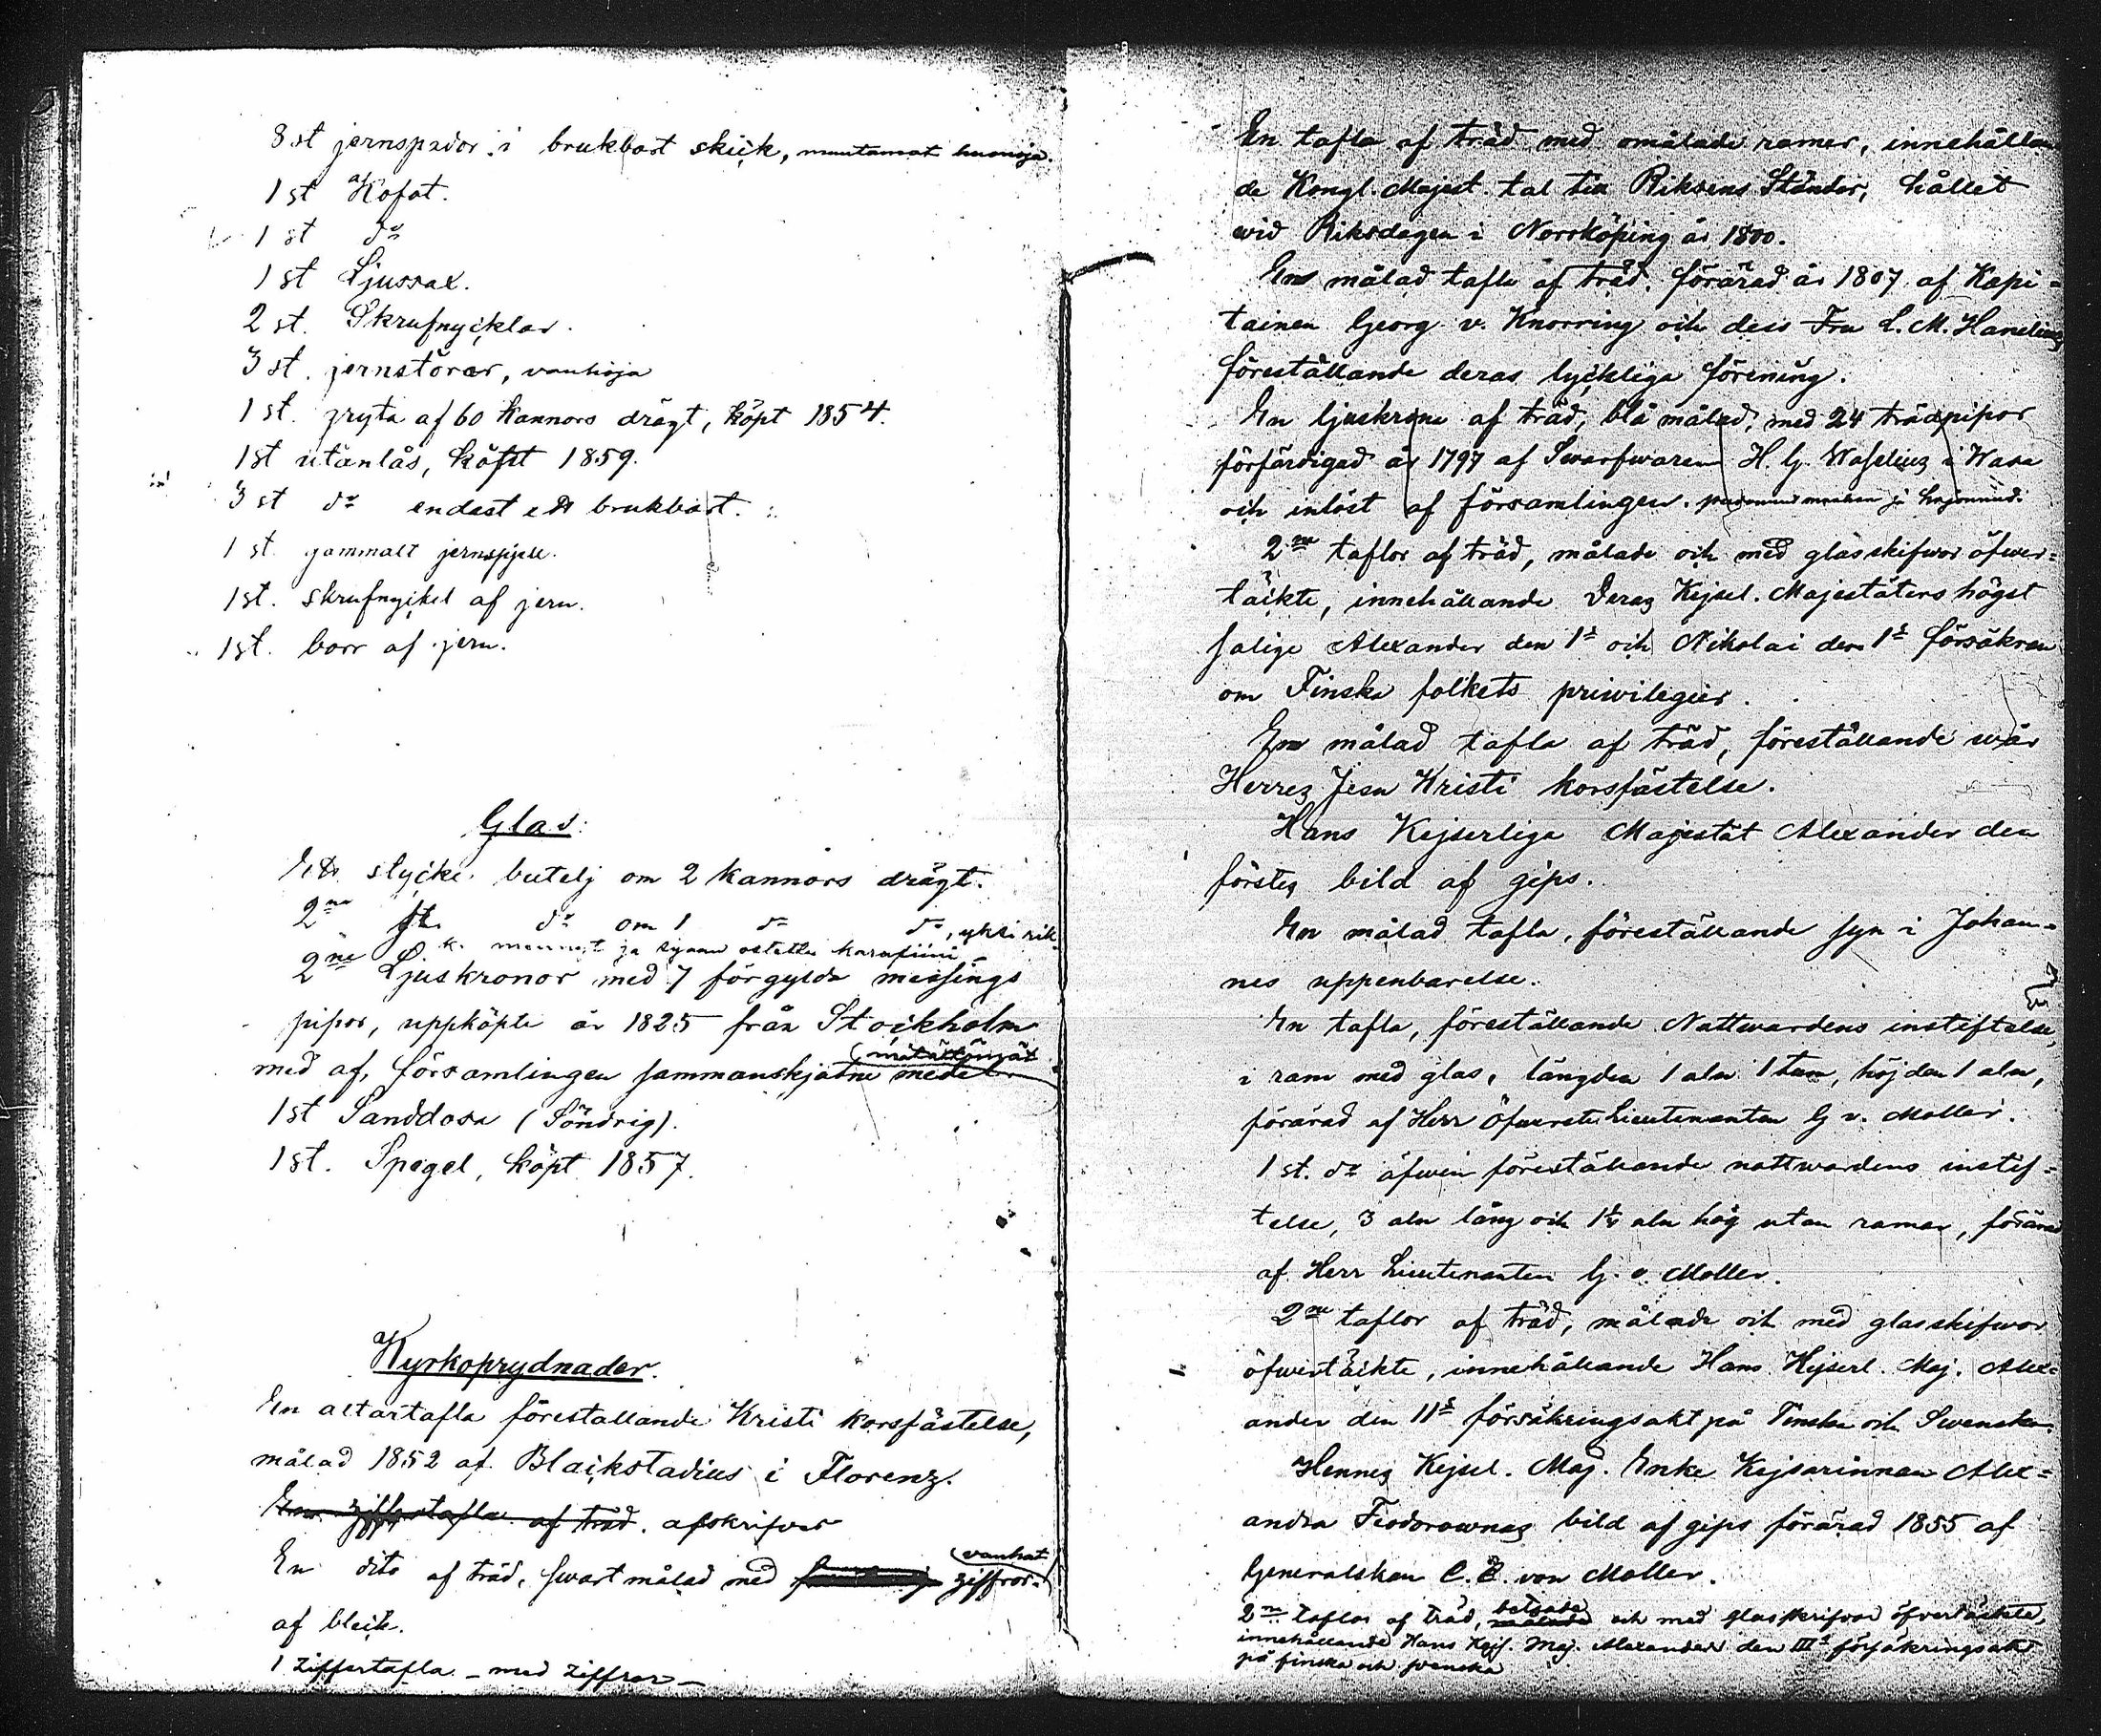 8 st jernspador i brukbart skick, muutamat huonoja.
1 st Kofot.
1 st do
1 st Ljussax.
2 st. Skrufnycklar.
3 st. jernstörar, vanhoja
1 st. gryta af 60 kannors drägt, köpt 1854.
1 st utanlås, köpt 1859.
3 st do endast ett brukbart.
1 st. gammalt jernspjell.
1 st. skrufnyckel af jern.
1 st. borr af jern.
Glas:
Ett stycke butelj om 2 kannors drägt.
2ne st. do om 1 do do, yksi rik-
k. mennyt ja sijaan ostettu karafiini
2ne Ljuskronor med 7 förgylda messings
pipor, uppköpte år 1825 från Stockholm
med af, församlingen sammanskjutne medel
1 st Sanddosa (Söndrig).
1 st. Spegel, köpt 1857.
Kyrkoprydnader.
En altartafla föreställande Kristi korsfästelse,
målad 1852 af Blackstadius i Florenz.
En ziffertafla af träd. afskrifves
En dito af träd, swart målad med ziffror (vanhat
af bleck.
1 Ziffertafla - med Ziffror -
En tafla af träd med omålade ramer, innehållan
de Kongl. Majest. tal till Riksens Ständer, hållet
wid Riksdagen i Norrköping år 1800.
En målad tafla af träd, förärad år 1807 af Kapi-
tainen Georg v. Knorring och dess Fru L. M.
föreställande deras lyckliga förening.
En ljuskrona af träd, blå målad, med 24 trädpipor
förfärdigad år 1797 af Swarfwaren H. G. Waselius i Wasa
och inlöst af församlingen.
2ne taflor af träd, målade och med glasskifwor öfwer-
täckte, innehållande Deras Kejsel. Majestäters högst
salige Alexander den 1s och Nikolai den 1s försäkran
om Finska folkets privilegier.
En målad tafla af träd, föreställande wår
Herres Jesu Kristi korsfästelse.
Hans Kejserliga Majestät Alexander den
förstes bild af gips.
En målad tafla, föreställande syn i Johan-
nes uppenbarelse.
En tafla, föreställande Nattwardens instiftelse,
i ram med glas, längden 1 aln 1 tum, höjden 1 aln,
förärad af Herr Öfwerste Lieutenanten G v. Moller.
1 st. do äfwen föreställande nattwardens instif-
telse, 3 aln lång och 1½ aln hög utan ramar, förärad
af Herr Lieutenanten G. v. Moller.
2ne taflor af träd, målade och med glasskifwor
öfwertäckte, innehållande Hans Kejserl. Maj. Alex-
ander den IIs försäkringsakt på Finska och Swenska.
Hennes Kejsel. Maj. Enke Kejsarinnan Alex-
andra Feodorownas bild af gips förärad 1855 af
Generalskan C. E. von Moller.
2ne taflor af träd, betsade målade och med glasskifvor öfvertäckta,
innehållande Hans Kejs. Maj. Alexander den IIIs försäkringsakt
på finska och svenska